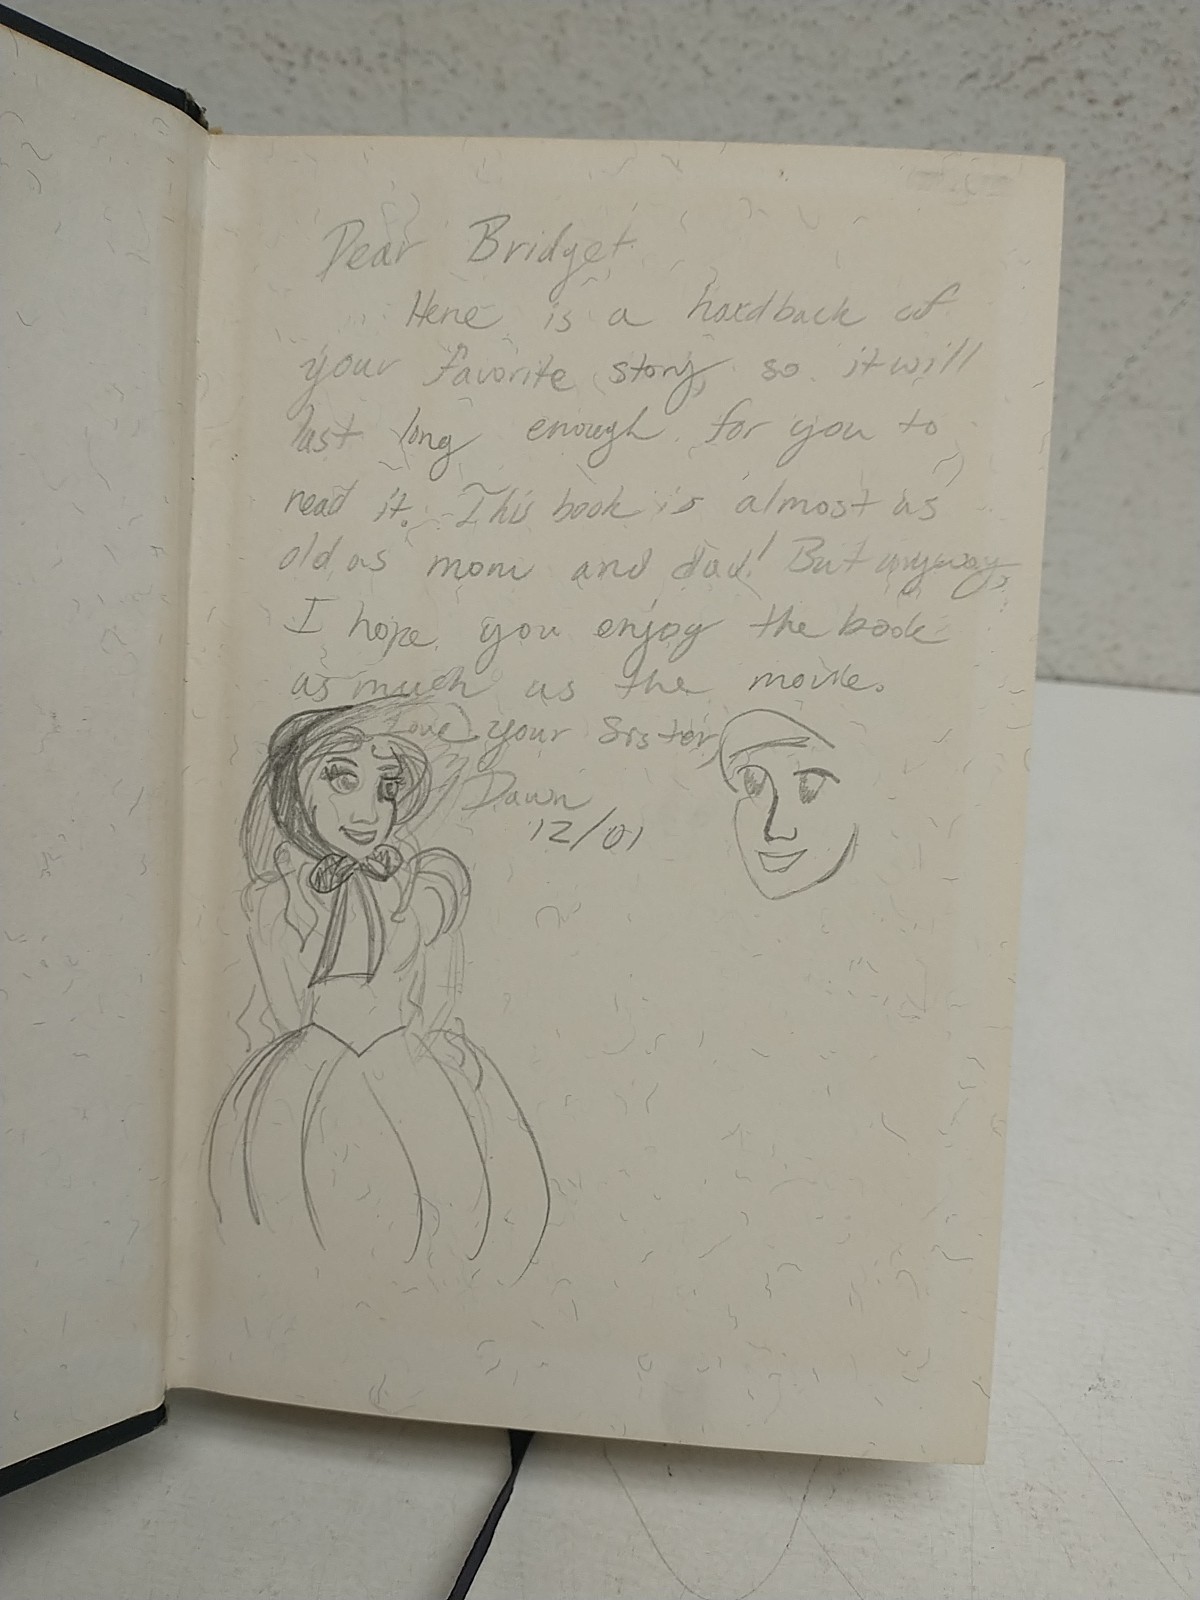 Dear Bridget
Here is a hardback of
your favorite story, so it will
last long enough for you to
read it. This book is almost as
old as mom and dad! But anyway,
I hope you enjoy the book
as much as the movie.
Love your Sister
Dawn
12/01